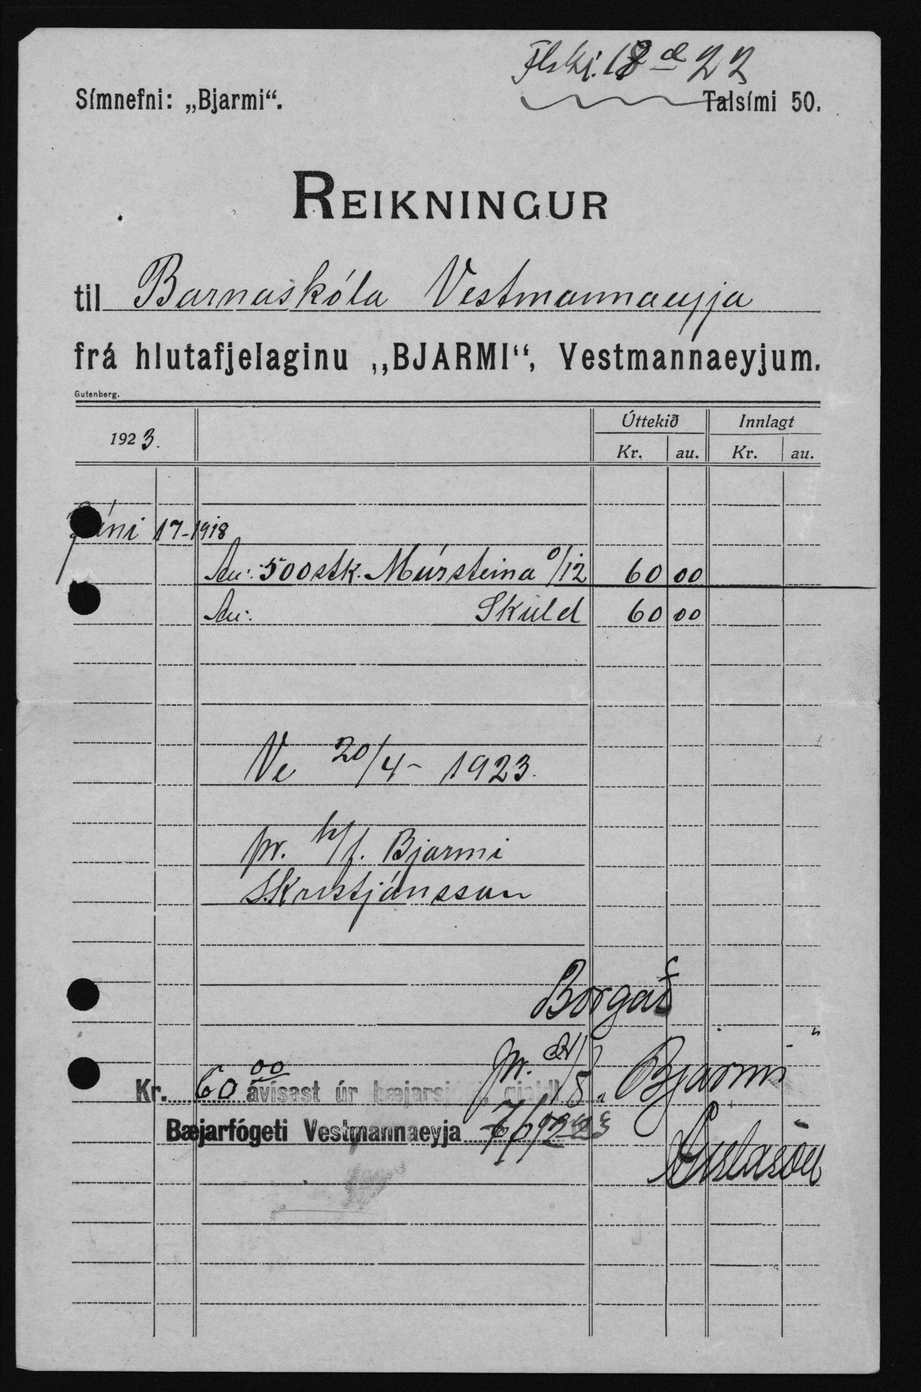 Flskj. 18 d 22
Símnefni: „Bjarmi“. Talsími 50.
REIKNINGUR
til Barnaskóla Vestmannaeyja
frá hlutafjelaginu „BJARMI“, Vestmannaeyjum.
Gutenberg.
1923. Úttekið Innlagt
Kr. au. Kr. au.
Júni 17-1918
An: 500 stk. Múrsteina 0/12 60 00
An: Skuld 60 00
Ve 20/4 - 1923.
pr. h/f. Bjarmi
S. Kristjánsson
Borgað
pr. h/f. Bjarmi
Kr. 60 00 ávísast úr bæjarsj
Bæjarfógeti Vestmannaeyja